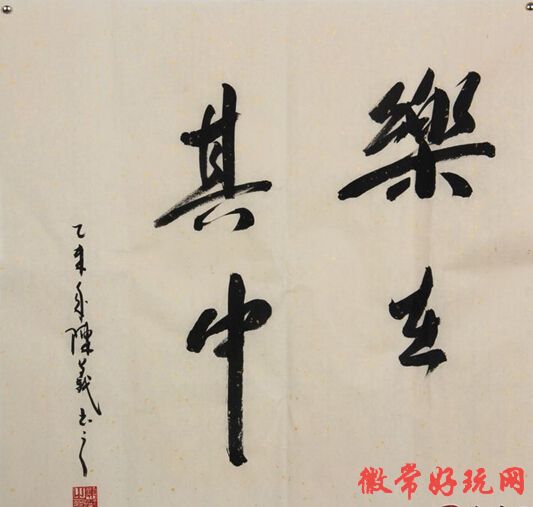 樂在
其中
乙未年陳義书之
徽常好玩网